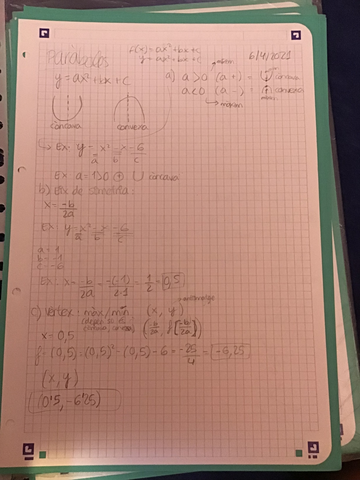 Paràboles
f(x) = ax² + bx + c
y = ax² + bx + c
6/4/2021
y = ax² + bx + c
a) a>0 (a +) = còncava
a<0 (a -) = convexa
còncava convexa
Ex: y = x² - x - 6
a b c
Ex a = 1>0 + ∪ còncava
b) Eix de simetria
x = -b/2a
Ex: y = x² - x - 6
a b c
a = 1
b = -1
c = -6
Ex: x = -b/2a = -(-1)/2·1 = 1/2 = 0,5
c) Vèrtex: màx/mín (x, y)
x = 0,5 (-b/2a, f[-b/2a])
f = (0,5) = (0,5)² - (0,5) - 6 = -25/4 = -6,25
(x, y)
(0'5, -6'25)